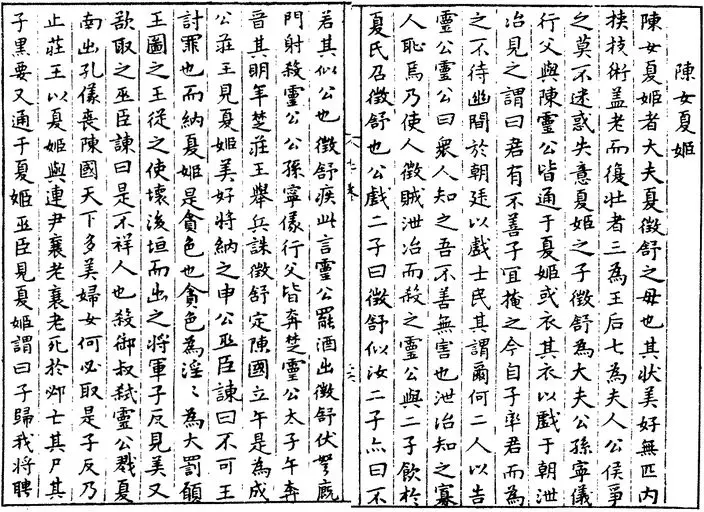 陳女夏姬
陳女夏姬者大夫夏徵舒之母也其状美好無匹内
挟技術盖老而復壮者三為王后七為夫人公侯爭
之莫不迷惑失意夏姬之子徵舒為大夫公孫寧儀
行父與陳靈公皆通于夏姬或衣其衣以戲于朝泄
冶見之謂曰君有不善子宜掩之今自子率君而為
之不待幽閒於朝廷以戲士民其謂爾何二人以告
靈公靈公曰衆人知之吾不善無害也泄冶知之寡
人恥焉乃使人徵賊泄冶而殺之靈公與二子飲於
夏氏召徵舒也公戲二子曰徵舒似汝二子亦曰不
若其似公也徵舒疾此言靈公罷酒出徵舒伏弩廄
門射殺靈公公孫寧儀行父皆奔楚靈公太子午奔
晉其明年楚莊王舉兵誅徵舒定陳國立午是為成
公莊王見夏姬美好將納之申公巫臣諫曰不可王
討罪也而納夏姬是貪色也貪色為淫〻為大罰願
王圖之王從之使壞後垣而出之將軍子反見美又
欲取之巫臣諫曰是不祥人也殺御叔弑靈公戮夏
南出孔儀喪陳國天下多美婦女何必取是子反乃
止莊王以夏姬與連尹襄老襄老死於邲亡其尸其
子黑要又通于夏姬巫臣見夏姬謂曰子歸我將聘